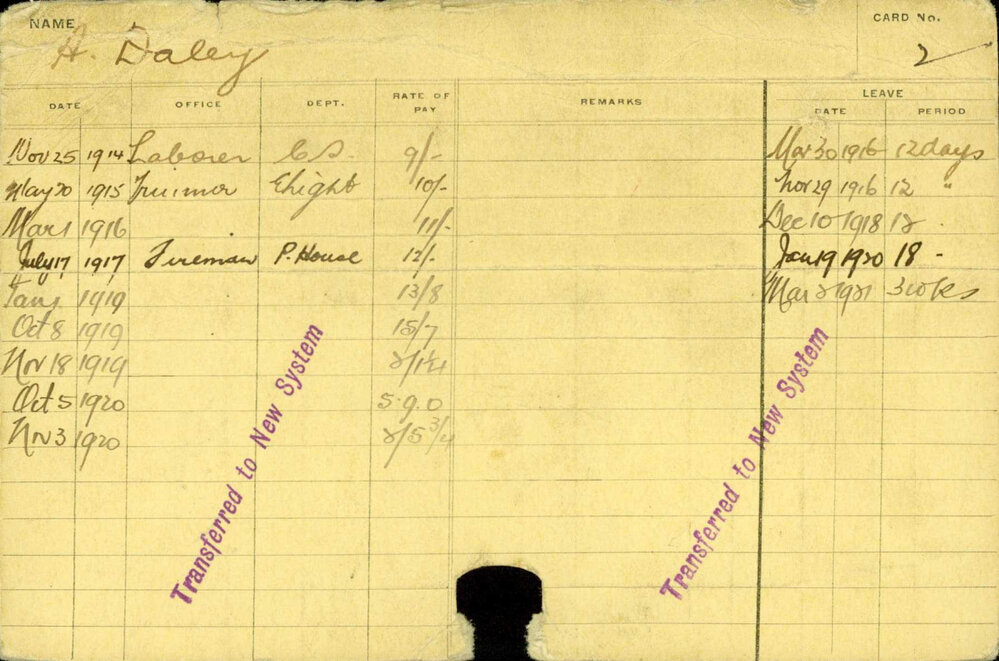 NAME
H. Daley
CARD No.
2
DATE OFFICE DEPT. RATE OF PAY REMARKS LEAVE
DATE PERIOD
Nov 25 1914 Laborer C.S. 9/- Mar 30 1916 12 days
May 20 1915 Trimmer 10/- Nov 29 1916 12 "
Mar 1 1916 11/- Dec 10 1918 12 "
July 17 1917 Fireman P. House 12/- Jan 19 1920 18 -
Jany 1919 13/8 Mar 2 1921 3 wks
Oct 8 1919 15/7
Nov 18 1919 2/1¼
Oct 5 1920 5.9.0
Nov 3 1920 2/5 3/4
Transferred to New System
Transferred to New System